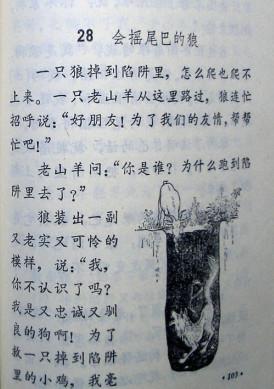 28 会摇尾巴的狼
一只狼掉到陷阱里，怎么爬也爬不
上来。一只老山羊从这里路过，狼连忙
招呼说：“好朋友！为了我们的友情，帮帮
忙吧！”
老山羊问：“你是谁？为什么跑到陷
阱里去了？”
狼装出一副
又老实又可怜的
模样，说：“我，
你不认识了吗？
我是又忠诚又驯
良的狗啊！为了
救一只掉到陷阱
里的小鸡，我毫
·103·